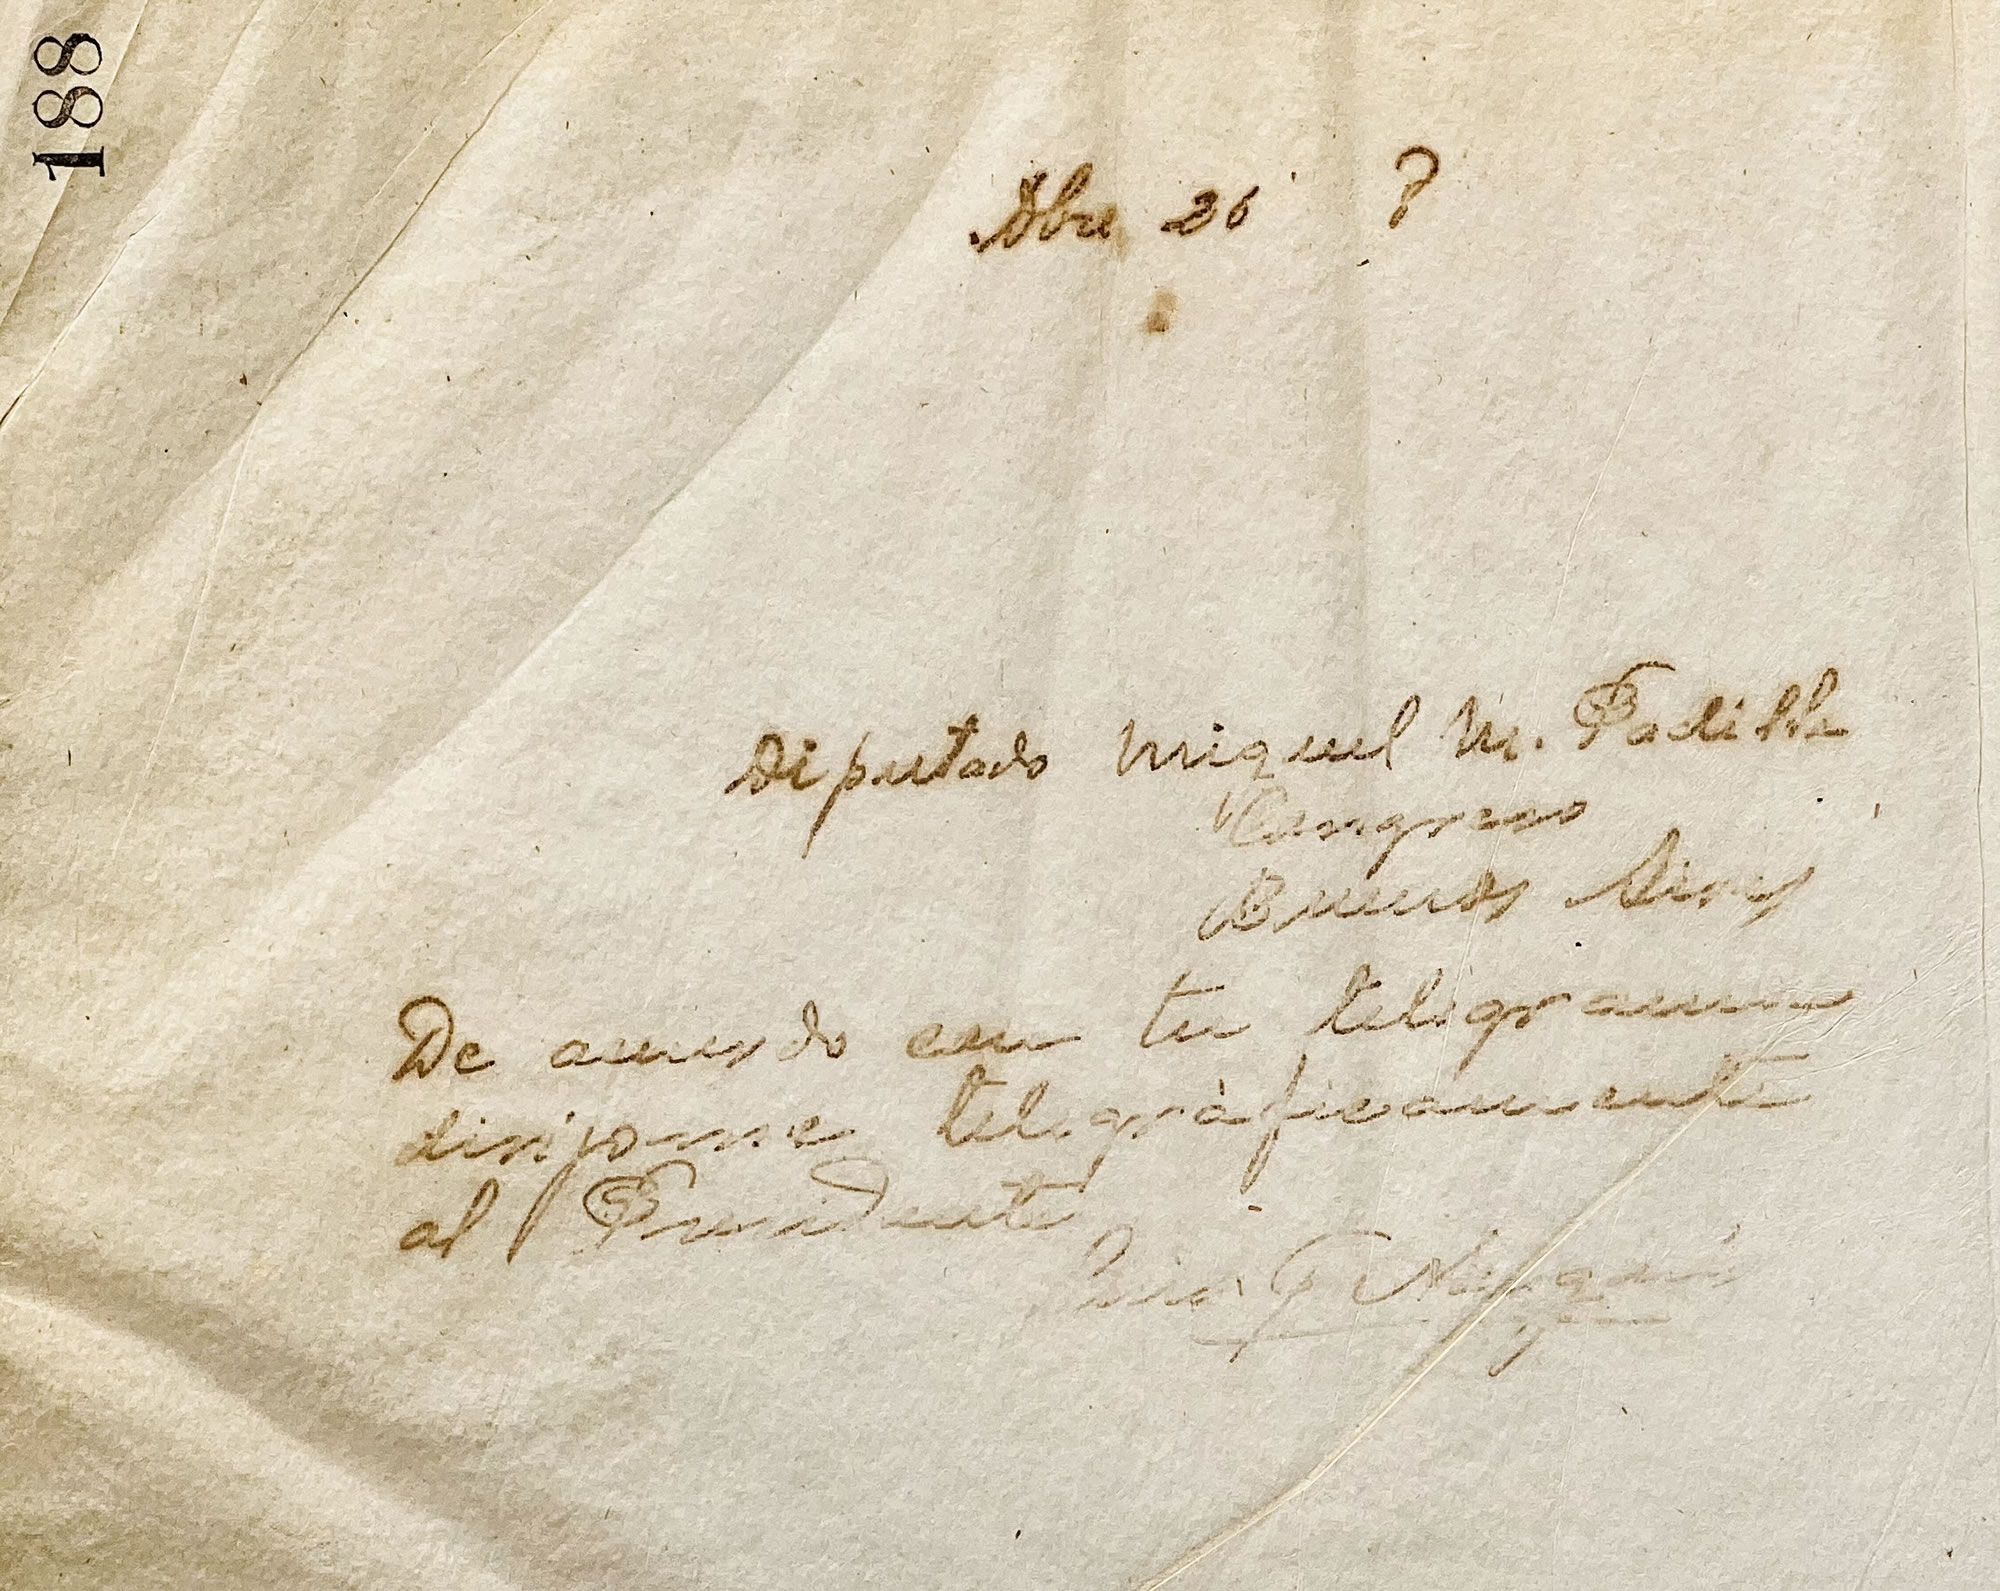 188
Dbre 26 ?
Diputado Miguel M. Padilla
Congreso
Buenos Aires
De acuerdo con tu telegrama
dirijome telegráficamente
al Presidente